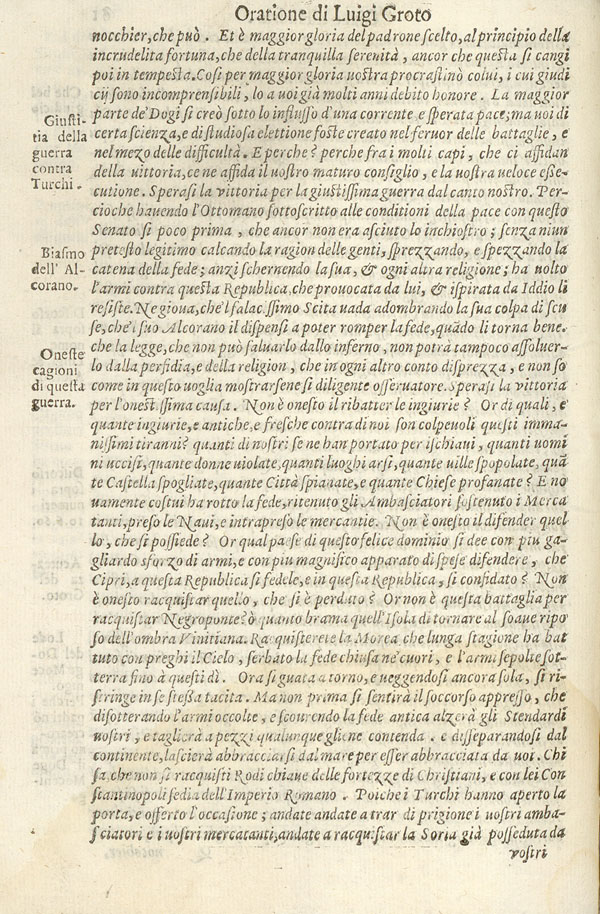 Oratione di Luigi Groto
nocchier, che può. Et è maggior gloria del padrone ſcelto, al principio della
incrudelita fortuna, che della tranquilla ſerenità, ancor che queſta ſi cangi
poi in tempeſta. Coſi per maggior gloria uoſtra procraſtinò colui, i cui giudi
cij ſono incomprenſibili, lo a uoi già molti anni debito honore. La maggior
parte de' Dogi ſi creò ſotto lo influſſo d'una corrente e ſperata pace; ma uoi di
certa ſcienza, e di ſtudioſa elettione foſte creato nel feruor delle battaglie, e
nel mezo delle difficultà. E perche? perche fra i molti capi, che ci affidan
della uittoria, ce ne affida il uoſtro maturo conſiglio, e la uoſtra veloce eſſe-
cutione. Speraſi la vittoria per la giuſtiſſima guerra dal canto noſtro. Per-
cioche hauendo l'Ottomano ſottoſcritto alle conditioni della pace con queſto
Senato ſi poco prima, che ancor non era aſciuto lo inchioſtro; ſenza niun
preteſto legitimo calcando la ragion delle genti, ſprezzando, e ſpezzando la
catena della fede; anzi ſchernendo la ſua, & ogni altra religione; ha uolto
l'armi contra queſta Republica, che prouocata da lui, & iſpirata da Iddio li
reſiſte. Ne gioua, che'l falaciſſimo Scita uada adombrando la ſua colpa di ſcu
ſe, che'l ſuo Alcorano il diſpenſi a poter romper la fede, quãdo li torna bene.
che la legge, che non può ſaluarlo dallo inferno, non potrà tampoco aſſoluer-
lo dalla perfidia, e della religion, che in ogni altro conto diſprezza, e non ſo
come in queſto uoglia moſtrarſene ſi diligente oſſeruatore. Speraſi la vittoria
per l'oneſtiſſima cauſa. Non è oneſto il ribatter le ingiurie? Or di quali, e
quante ingiurie, e antiche, e freſche contra di noi ſon colpeuoli queſti imma-
niſſimi tiranni? quanti di noſtri ſe ne han portato per iſchiaui, quanti uomi
ni ucciſi, quante donne uiolate, quanti luoghi arſi, quante uille ſpopolate, quã
te Caſtella ſpogliate, quante Città ſpianate, e quante Chieſe profanate? E no
uamente coſtui ha rotto la fede, ritenuto gli Ambaſciatori ſoſtenuto i Merca
tanti, preſo le Naui, e intrapreſo le mercantie. Non è oneſto il difender quel
lo, che ſi poſſiede? Or qual paeſe di queſto felice dominio ſi dee con piu ga-
gliardo sforzo di armi, e con piu magnifico apparato di ſpeſe difendere, che
Cipri, a queſta Republica ſi fedele, e in queſta Republica, ſi confidato? Non
è oneſto racquiſtar quello, che ſi è perduto? Or non è queſta battaglia per
racquiſtar Negroponte? ò quanto brama quell'Iſola di tornare al ſoaue ripo
ſo dell'ombra Vinitiana. Racquiſterete la Morea che lunga ſtagione ha bat
tuto con preghi il Cielo, ſerbato la fede chiuſa ne' cuori, e l'armi ſepolte ſot-
terra fino à queſti dì. Ora ſi guata a torno, e ueggendoſi ancora ſola, ſi ri-
ſtringe in ſe ſteſſa tacita. Ma non prima ſi ſentirà il ſoccorſo appreſſo, che
diſotterando l'armi occolte, e ſcourendo la fede antica alzerà gli Stendardi
uoſtri, e taglierà a pezzi qualunque gliene contenda. e diſſeparandoſi dal
continente, laſcierà abbracciarſi dal mare per eſſer abbracciata da uoi. Chi
ſa, che non ſi racquiſti Rodi chiaue delle fortezze di Chriſtiani, e con lei Con
ſtantinopoli ſedia dell'Imperio Romano. Poiche i Turchi hanno aperto la
porta, e offerto l'occaſione; andate andate a trar di prigione i uoſtri amba-
ſciatori e i uoſtri mercatanti, andate a racquiſtar la Soria già poſſeduta da
voſtri
Giuſti-
tia della
guerra
contra
Turchi.
Biaſmo
dell' Al-
corano.
Oneſte
cagioni
di queſta
guerra.